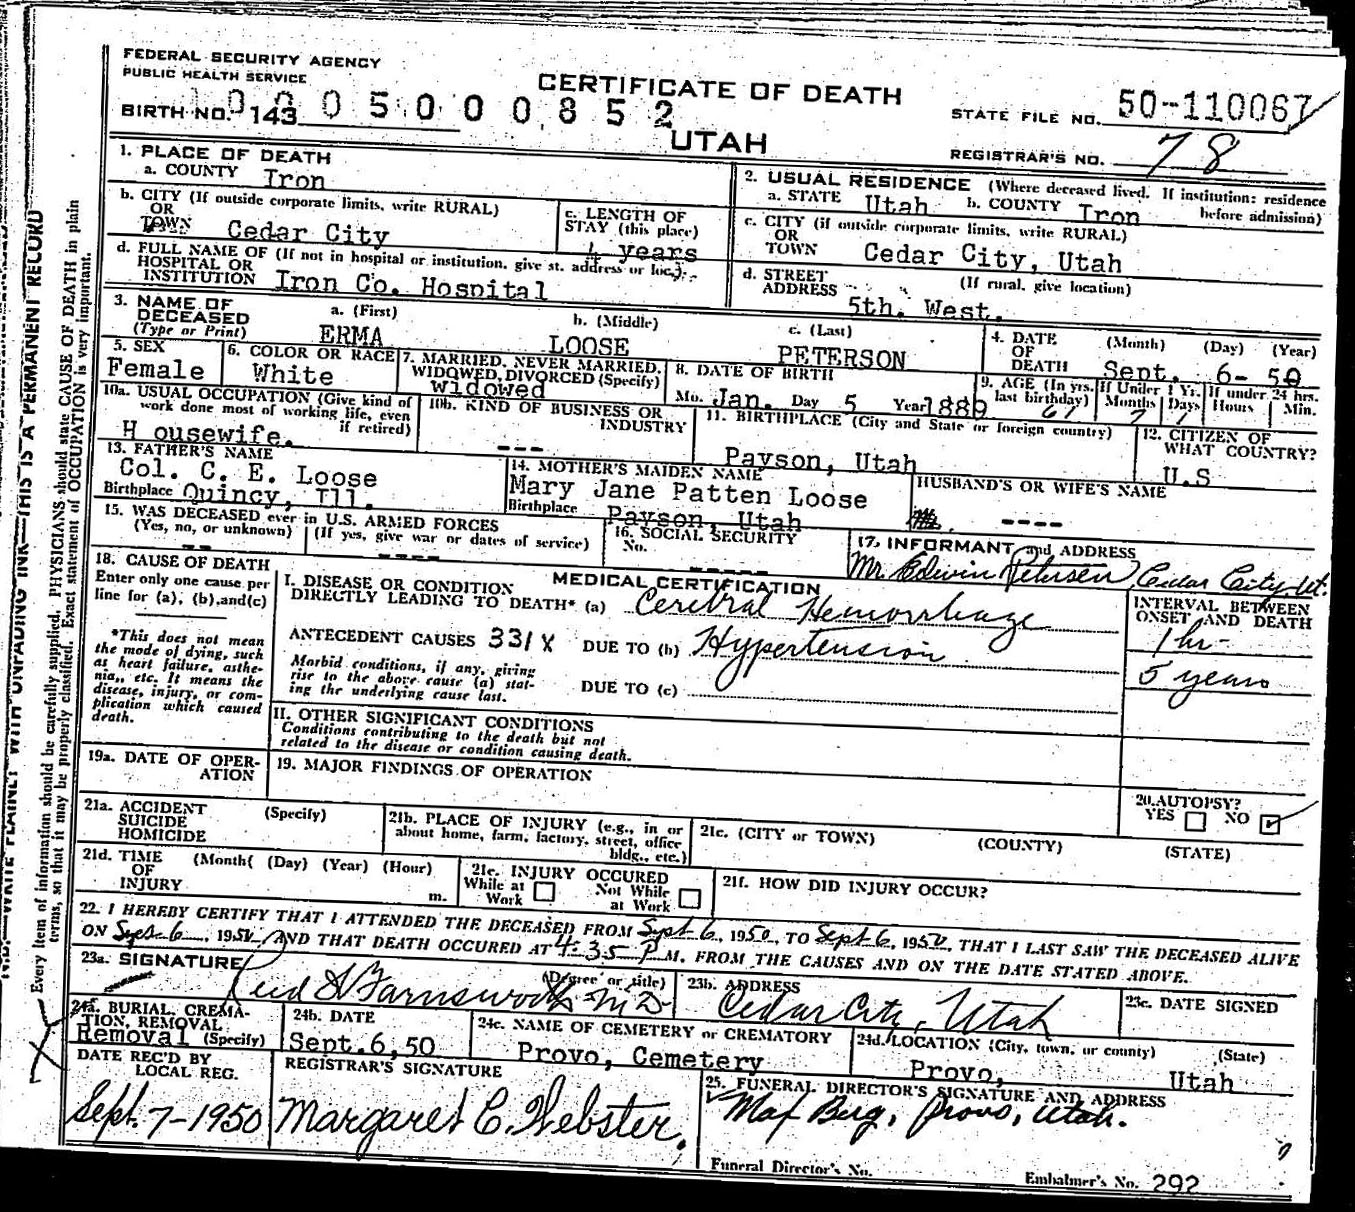 FEDERAL SECURITY AGENCY
PUBLIC HEALTH SERVICE
CERTIFICATE OF DEATH
UTAH
BIRTH NO. 143
0005000852
STATE FILE NO. 50-110067
REGISTRAR'S NO. 78
1. PLACE OF DEATH
a. COUNTY Iron
b. CITY (If outside corporate limits, write RURAL)
OR
TOWN Cedar City
c. LENGTH OF
STAY (this place)
4 years
d. FULL NAME OF (If not in hospital or institution, give st. address or loc.)
HOSPITAL OR
INSTITUTION Iron Co. Hospital
2. USUAL RESIDENCE (Where deceased lived. If institution: residence
before admission)
a. STATE Utah b. COUNTY Iron
c. CITY (if outside corporate limits, write RURAL)
OR
TOWN Cedar City, Utah
d. STREET
ADDRESS (If rural, give location)
5th. West.
3. NAME OF
DECEASED
(Type or Print)
a. (First) b. (Middle) c. (Last)
ERMA LOOSE PETERSON
4. DATE
OF
DEATH
(Month) (Day) (Year)
Sept. 6- 50
5. SEX
Female
6. COLOR OR RACE
White
7. MARRIED, NEVER MARRIED,
WIDOWED, DIVORCED (Specify)
Widowed
8. DATE OF BIRTH
Mo. Jan. Day 5 Year 1889
9. AGE (In yrs.
last birthday)
61
If Under 1 Yr.
Months Days
7 1
If under 24 hrs.
Hours Min.
10a. USUAL OCCUPATION (Give kind of
work done most of working life, even
if retired)
H ousewife.
10b. KIND OF BUSINESS OR
INDUSTRY
---
11. BIRTHPLACE (City and State or foreign country)
Payson, Utah
12. CITIZEN OF
WHAT COUNTRY?
U.S
13. FATHER'S NAME
Col. C. E. Loose
Birthplace Quincy, Ill.
14. MOTHER'S MAIDEN NAME
Mary Jane Patten Loose
Birthplace Payson, Utah
HUSBAND'S OR WIFE'S NAME
----
15. WAS DECEASED ever in U.S. ARMED FORCES
(Yes, no, or unknown) (If yes, give war or dates of service)
-- ----
16. SOCIAL SECURITY
No.
-----
17. INFORMANT and ADDRESS
Mr. Edwin Petersen Cedar City Ut.
18. CAUSE OF DEATH
Enter only one cause per
line for (a), (b), and (c)
*This does not mean
the mode of dying, such
as heart failure, asthe-
nia,, etc. It means the
disease, injury, or com-
plication which caused
death.
MEDICAL CERTIFICATION
I. DISEASE OR CONDITION
DIRECTLY LEADING TO DEATH* (a) Cerebral Hemorrhage
ANTECEDENT CAUSES 331X DUE TO (b) Hypertension
Morbid conditions, if any, giving
rise to the above cause (a) stat-
ing the underlying cause last.
DUE TO (c)
INTERVAL BETWEEN
ONSET AND DEATH
1 hr-
5 years
II. OTHER SIGNIFICANT CONDITIONS
Conditions contributing to the death but not
related to the disease or condition causing death.
19a. DATE OF OPER-
ATION
19. MAJOR FINDINGS OF OPERATION
20. AUTOPSY?
YES NO
21a. ACCIDENT (Specify)
SUICIDE
HOMICIDE
21b. PLACE OF INJURY (e.g., in or
about home, farm, factory, street, office
bldg., etc.)
21c. (CITY or TOWN) (COUNTY) (STATE)
21d. TIME (Month( (Day) (Year) (Hour)
OF
INJURY m.
21e. INJURY OCCURED
While at Not While
Work at Work
21f. HOW DID INJURY OCCUR?
22. I HEREBY CERTIFY THAT I ATTENDED THE DECEASED FROM Sept 6, 1950, TO Sept 6, 1950, THAT I LAST SAW THE DECEASED ALIVE
ON Sept 6, 1950, AND THAT DEATH OCCURED AT 4:35 P M. FROM THE CAUSES AND ON THE DATE STATED ABOVE.
23a. SIGNATURE (Degree or title)
Reid A Farnsworth M D
23b. ADDRESS
Cedar City, Utah
23c. DATE SIGNED
24a. BURIAL, CREMA-
TION, REMOVAL
Removal (Specify)
24b. DATE
Sept.6,50
24c. NAME OF CEMETERY or CREMATORY
Provo, Cemetery
24d. LOCATION (City, town, or county) (State)
Provo, Utah
DATE REC'D BY
LOCAL REG.
Sept. 7-1950
REGISTRAR'S SIGNATURE
Margaret C. Webster.
25. FUNERAL DIRECTOR'S SIGNATURE AND ADDRESS
Max Berg, Provo, Utah.
Funeral Director's No.
Embalmer's No. 292
WRITE PLAINLY WITH UNFADING INK—THIS IS A PERMANENT RECORD
Every item of information should be carefully supplied. PHYSICIANS should state CAUSE OF DEATH in plain
terms, so that it may be properly classified. Exact statement of OCCUPATION is very important.